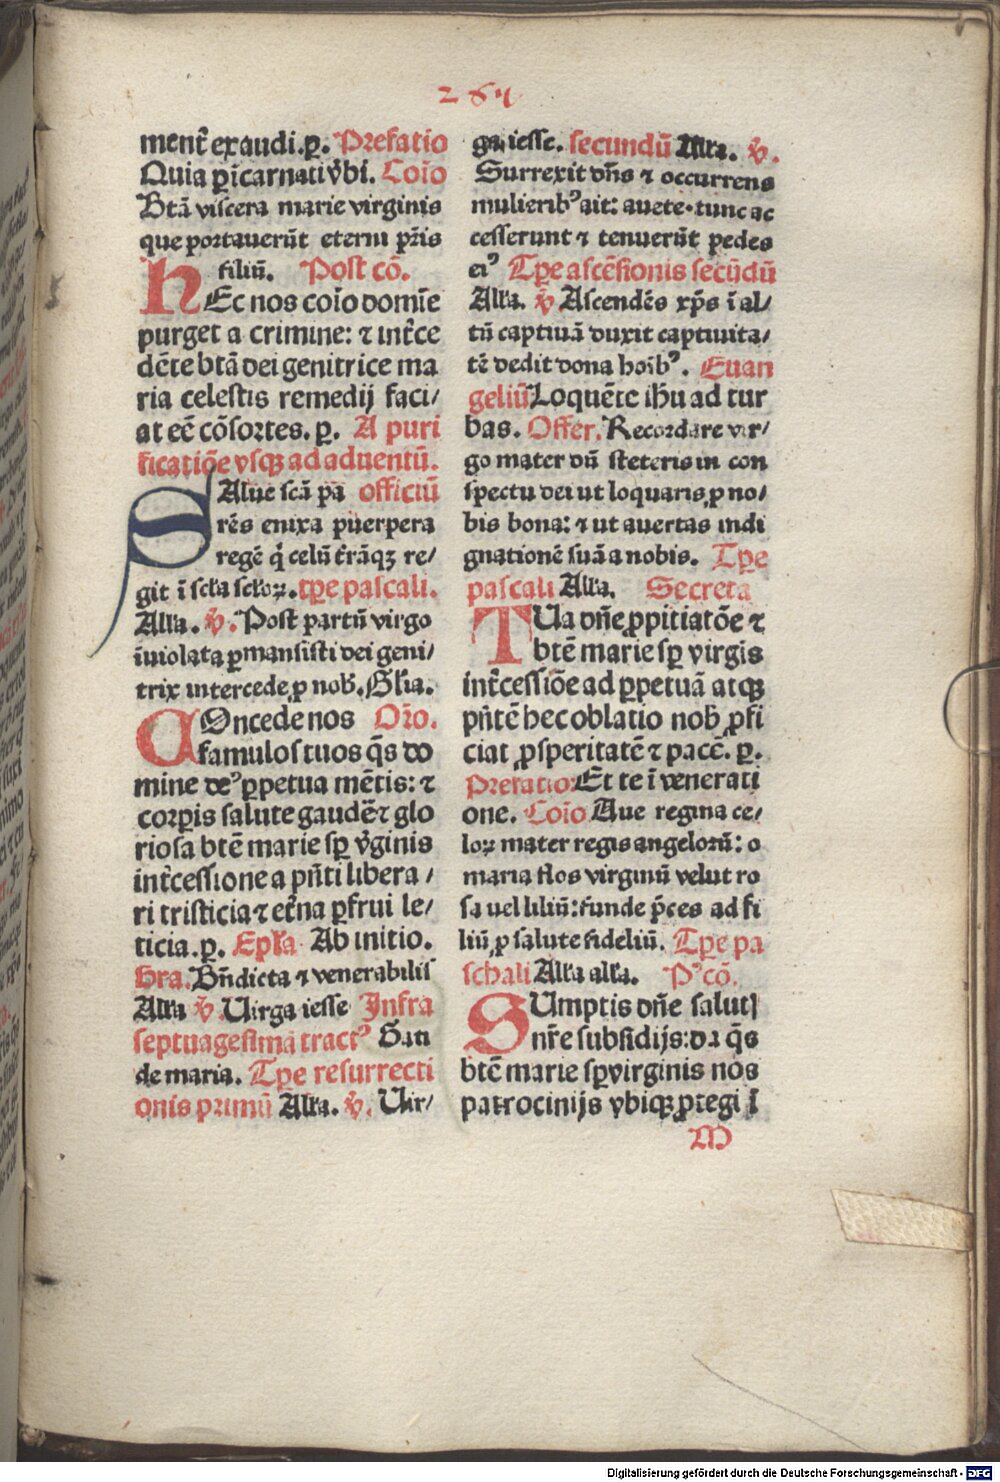 264
ment̃ exaudi.ꝑ. Prefatio
Quia ꝑ ĩcarnati v̓bi. Coĩo
Btã viscera marie virginis
que portauerũt eterni pr̃is
filiũ. Post cõ.
HEc nos coĩo domĩe
purget a crimine: ⁊ int̃ce
dẽte btã dei genitrice ma
ria celestis remedij faci/
at eẽ cõsortes. ꝑ. A puri
ficatiõe vsqꝫ ad aduentũ.
SAlue scã pa officiũ
rẽs enixa puerpera
regẽ q̃ celũ t̃rãqꝫ re/
git ĩ scl̃a scl̃oꝝ. tꝑe pascali.
Alla. ℣. Post partũ virgo
ĩuiolata ꝑmansisti dei geni/
trix intercede ꝓ nob̃. Gl̃ia.
COncede nos Orõ.
famulos tuos q̃s do
mine deꝰ ꝑpetua mẽtis: ⁊
corꝑis salute gaudẽ⁊ glo
riosa btẽ marie sꝑ v̓ginis
int̃cessione a pñti libera/
ri tristicia ⁊ et̃na ꝑfrui le/
ticia. ꝑ. Epl̃a Ab initio.
Gra. Bñdicta ⁊ venerabilis
Alla ℣ Uirga iesse Infra
septuagesimã tractꝰ Gau
de maria. Tꝑe resurrecti
onis primũ Alla. ℣. Uir/
ga iesse. secundũ Alla. ℣.
Surrexit dñs ⁊ occurrens
mulieribꝰ ait: auete. tunc ac
cesserunt ⁊ tenuerũt pedes
eiꝰ Tꝑe ascẽsionis secũdũ
Alla. ℣ Ascendẽs xp̃s ĩ al/
tũ captiuã duxit captiuita/
tẽ dedit dona hoĩbꝰ. Euan
geliũ Loquẽte ihũ ad tur
bas. Offer. Recordare vir/
go mater dũ steteris in con
spectu dei ut loquaris ꝓ no/
bis bona: ⁊ ut auertas indi
gnationẽ suã a nobis. Tꝑe
pascali Alla. Secreta
TUa dñe ꝓpitiatõe ⁊
btẽ marie sꝑ virgĩs
int̃cessiõe ad ꝑpetuã atqꝫ
pñtẽ hec oblatio nob̃ ꝓfi
ciat ꝓsperitatẽ ⁊ pacẽ. ꝑ.
Prefatio: Et te ĩ venerati
one. Coĩo Aue regina ce/
loꝝ mater regis angelorũ: o
maria flos virginũ velut ro
sa uel liliũ: funde p̃ces ad fi
liũ ꝓ salute fideliũ. Tꝑe pa
schali Alla alla. Pꝰ cõ.
SUmptis dñe salutꝭ
nr̃e subsidijs: da q̃s
btẽ marie sꝑ virginis nos
patrocinijs vbiqꝫ ꝓtegi ĩ
M
Digitalisierung gefördert durch die Deutsche Forschungsgemeinschaft - DFG